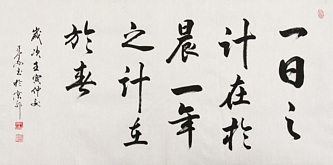 一日之
计在於
晨一年
之计在
於春
岁次壬寅仲秋